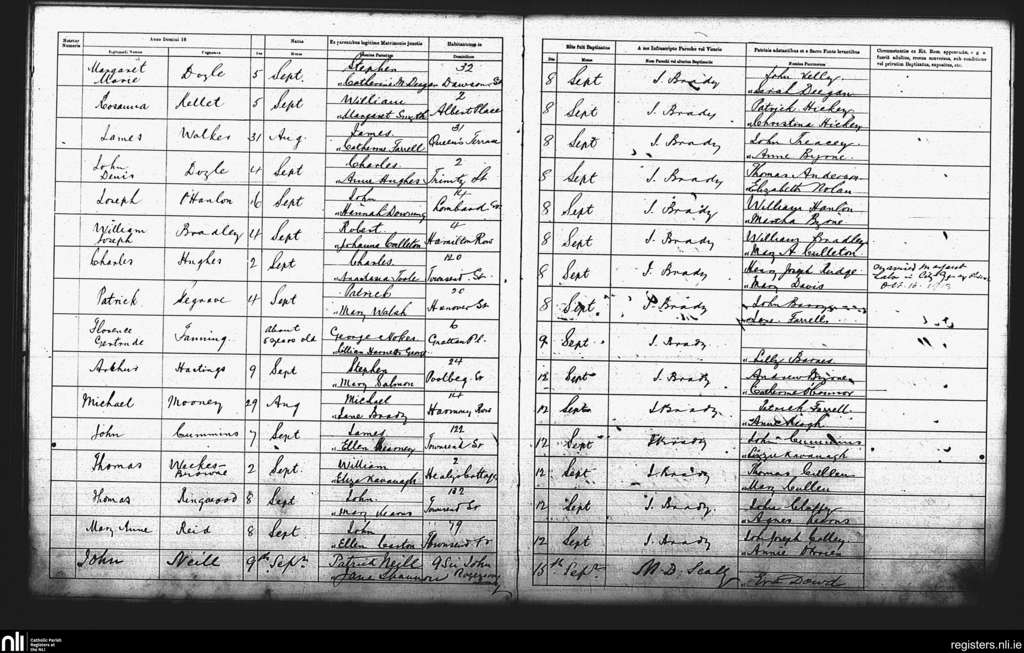 Notetur Numeris
Anno Domini 18
Nomen
Ex parentibus legitimo Matrimonio junctis
Habitantibus in
Die
Mense
Domicilium
Rite fuit Baptizatus
A me Infrascripto Parocho vel Vicario
Patrinis adstantibus et a Sacro Fonte levantibus
Die
Mense
Nomina Patrinorum
Margaret Marie Doyle 5 Sept. Stephen 32
„Catherine M Deegan Dawson St
8 Sept J. Brady John Kelly
„Sarah Deegan
Rosanna Kellet 5 Sept William
„Margaret Smyth Albert Place
8 Sept J. Brady Patrick Hickey
„Christina Hickey
James Walker 31 Aug James 31
„Catherine Farrell Queen's Terrace
8 Sept J. Brady John Treacey
„Anne Byrne
John Denis Doyle 4 Sept Charles 2
„Anne Hughes Trinity St
8 Sept J. Brady Thomas Anderson
„Elizabeth Nolan
Joseph O'Hanlon 6 Sept John 14
„Hannah Downing Lombard St
8 Sept J. Brady William Hanlon
„Martha Byrne
William Joseph Bradley 4 Sept Robert 4
„Johanna Culleton Hamilton Row
8 Sept J. Brady William Bradley
„Mary A Culleton
Charles Hughes 2 Sept Charles 120
„Anastasia Toole Townsend St
8 Sept J. Brady Henry Joseph Judge
„Mary Davis
Patrick Segrave 4 Sept Patrick 20
„Mary Walsh Hanover St
8 Sept J. Brady John
„Jane Farrell
Florence Gertrude Fanning about years old George Nokes 6
„Lillian Grattan Pl.
9 Sept J. Brady
„Lilly Barnes
Arthur Hastings 9 Sept Stephen 24
„Mary Salmon Poolbeg St
12 Sept J. Brady Andrew Byrne
„Catherine O'Connor
Michael Mooney 29 Aug Michael 14
„Jane Brady Harmony Row
12 Sept J Brady Patrick Farrell
„Anne Keogh
John Cummins 7 Sept James 122
„Ellen Kearney Townsend St
12 Sept J Brady John Cummins
„Lizzie Kavanagh
Thomas 2 Sept. William 2
„Eliza Kavanagh Healy's Cottage
12 Sept J. Brady Thomas Cullen
„Mary Cullen
Thomas Ringwood 8 Sept John 182
„Mary Kearns Townsend St
12 Sept J. Brady John Claffey
„Agnes Kearns
Mary Anne Reid 8 Sept. John 79
„Ellen Carton Townsend St
12 Sept J. Brady John Joseph Colley
„Annie O'Brien
John Neill 9th Sept. Patrick Neill 9 Sir John
„Jane Shannon Rogerson
15th Sept. M. D. Scally
Eva Dowd
nli
Catholic Parish
Registers at
the NLI
registers.nli.ie